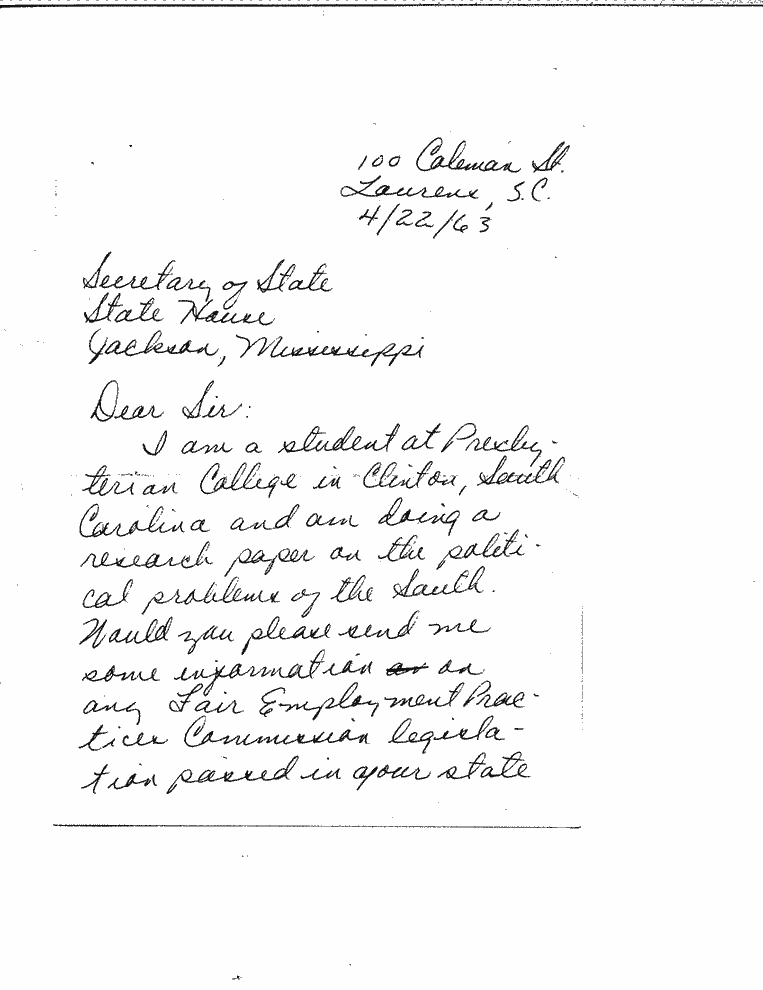 100 Coleman St.
Laurens, S.C.
4/22/63
Secretary of State
State House
Jackson, Mississippi
Dear Sir:
I am a student at Presby-
terian College in Clinton, South
Carolina and am doing a
research paper on the politi-
cal problems of the South.
Would you please send me
some information on
any Fair Employment Prac-
tices Commission legisla-
tion passed in your state